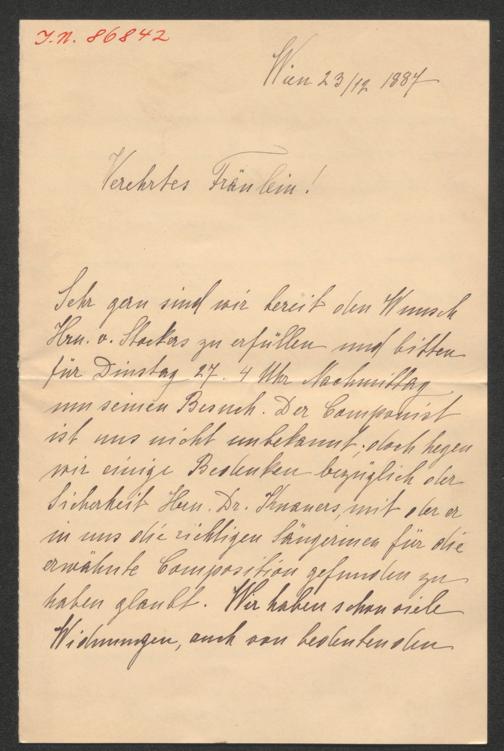 I.N. 86842
Wien 23/12 1887
Verehrtes Fräulein!
Sehr gern sind wir bereit den Wunsch
Hrn. v. Stockers zu erfüllen und bitten
für Dinstag 27. 4 Uhr Nachmittag
um seinen Besuch. Der Componist
ist uns nicht unbekannt, doch hegen
wir einige Bedenken bezüglich der
Sicherheit Hrn. Dr. Knauers, mit der er
in uns die richtigen Sängerinen für die
erwähnte Composition gefunden zu
haben glaubt. Wir haben schon viele
Widmungen, auch von bedeutenden